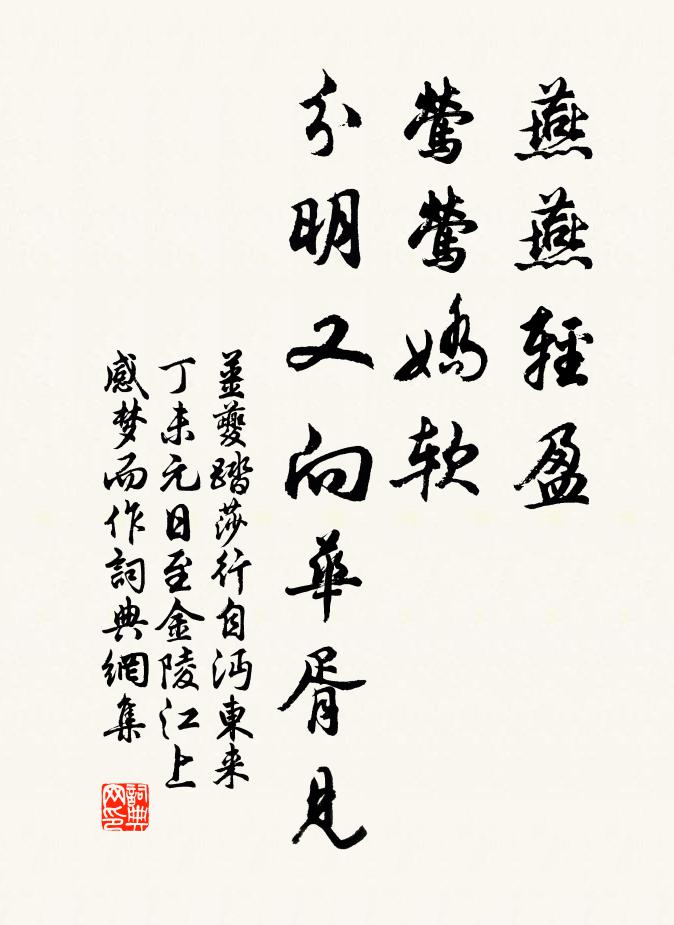 燕燕輕盈
鶯鶯嬌軟
分明又向華胥見
薑夔踏莎行自沔東来
丁未元日至金陵江上
感梦而作詞典網集
詞典
网印